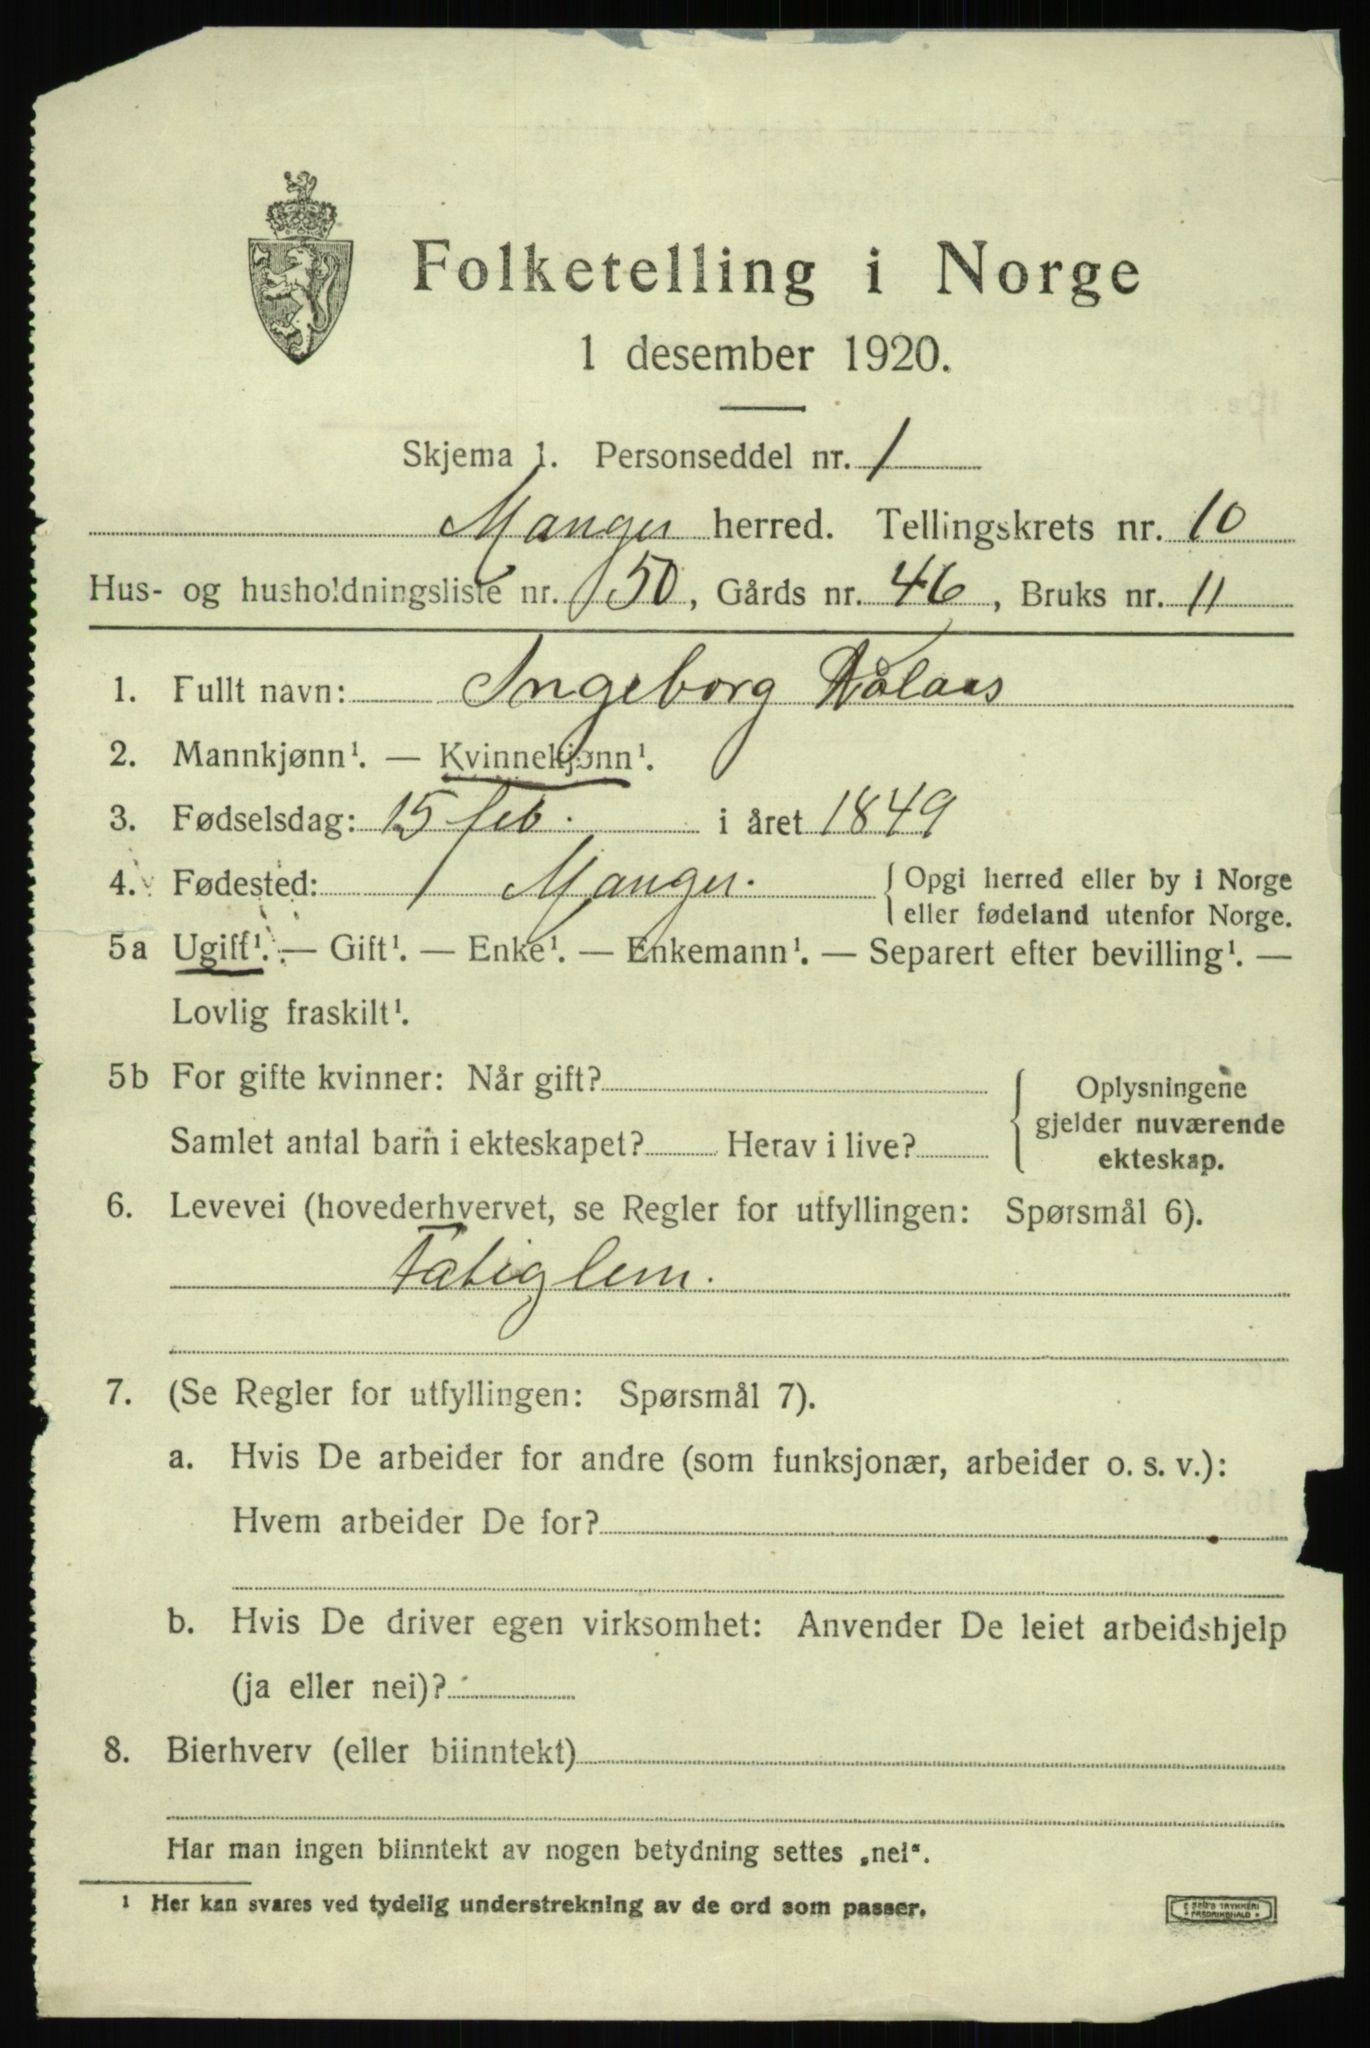 Folketelling i Norge
1 desember 1920.
Skjema 1. Personseddel nr. 1
Manger herred. Tellingskrets nr. 10
Hus- og husholdningsliste nr. 50, Gårds nr. 46, Bruks nr. 11
1. Fullt navn: Ingeborg
2. Mannkjønn¹. — Kvinnekjønn¹.
3. Fødselsdag: 15 feb. i året 1849
4. Fødested: Manger. { Opgi herred eller by i Norge
eller fødeland utenfor Norge.
5a Ugift¹. — Gift¹. — Enke¹. — Enkemann¹. — Separert efter bevilling¹. —
Lovlig fraskilt¹.
5b For gifte kvinner: Når gift? { Oplysningene
gjelder nuværende
Samlet antal barn i ekteskapet? Herav i live?
ekteskap.
6. Levevei (hovederhvervet, se Regler for utfyllingen: Spørsmål 6).
Fatiglem.
7. (Se Regler for utfyllingen: Spørsmål 7).
a. Hvis De arbeider for andre (som funksjonær, arbeider o. s. v.):
Hvem arbeider De for?
b. Hvis De driver egen virksomhet: Anvender De leiet arbeidshjelp
(ja eller nei)?
8. Bierhverv (eller biinntekt)
Har man ingen biinntekt av nogen betydning settes „nei“.
¹ Her kan svares ved tydelig understrekning av de ord som passer.